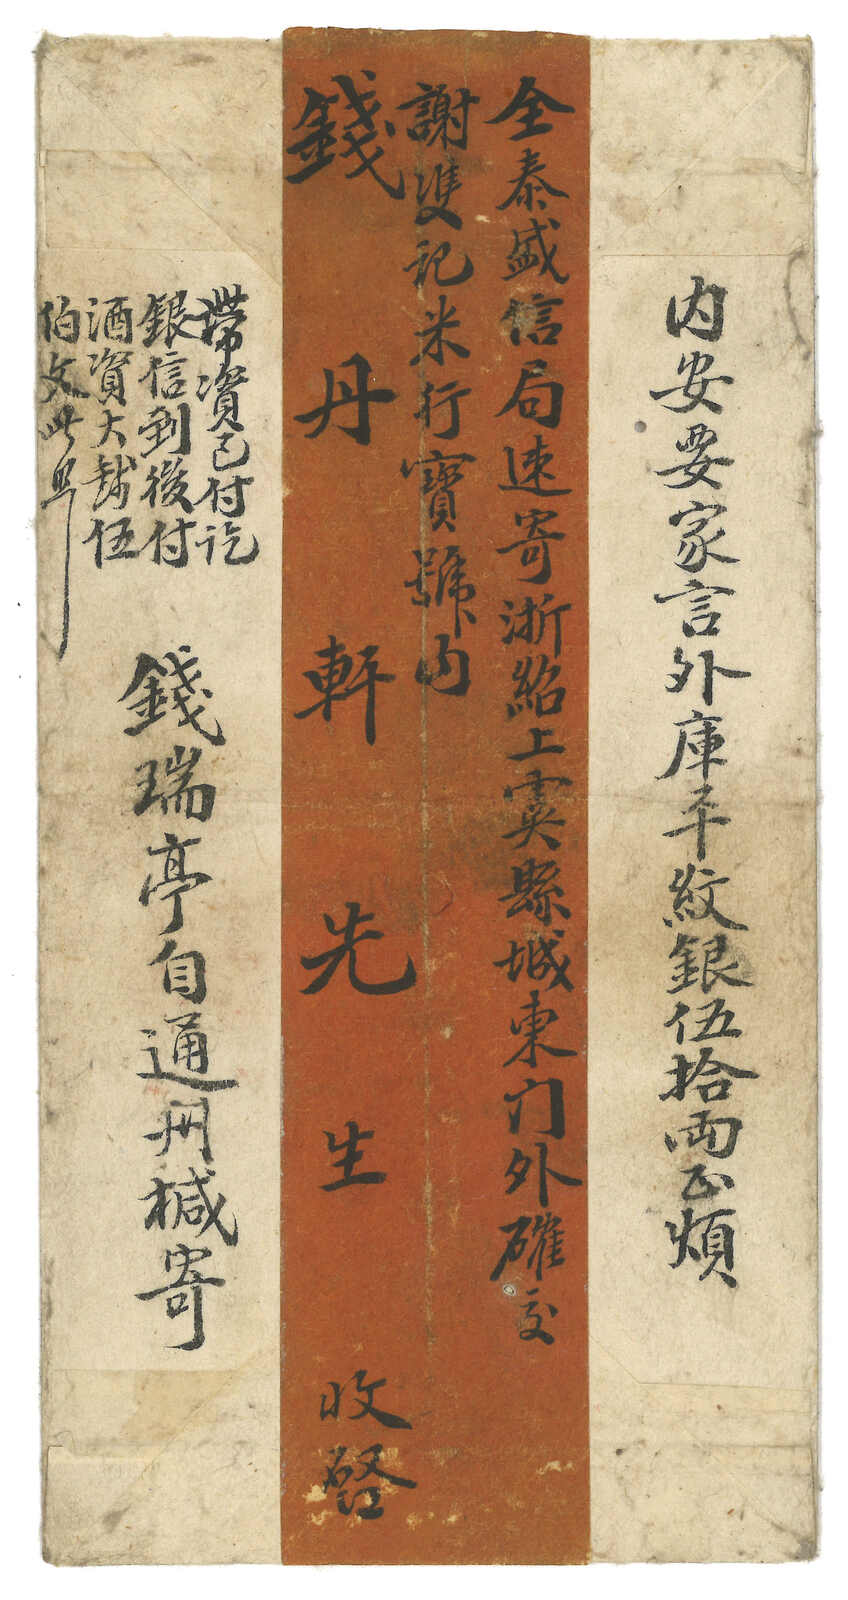 内安要家言外庫平紋銀伍拾兩正煩
全泰盛信局速寄浙紹上虞縣城東门外確交
謝雙記米行寶號内
錢丹軒先生收啓
帶資已付訖
銀信到後付
酒資大錢伍
伯文此照
錢瑞亭自通州椷寄